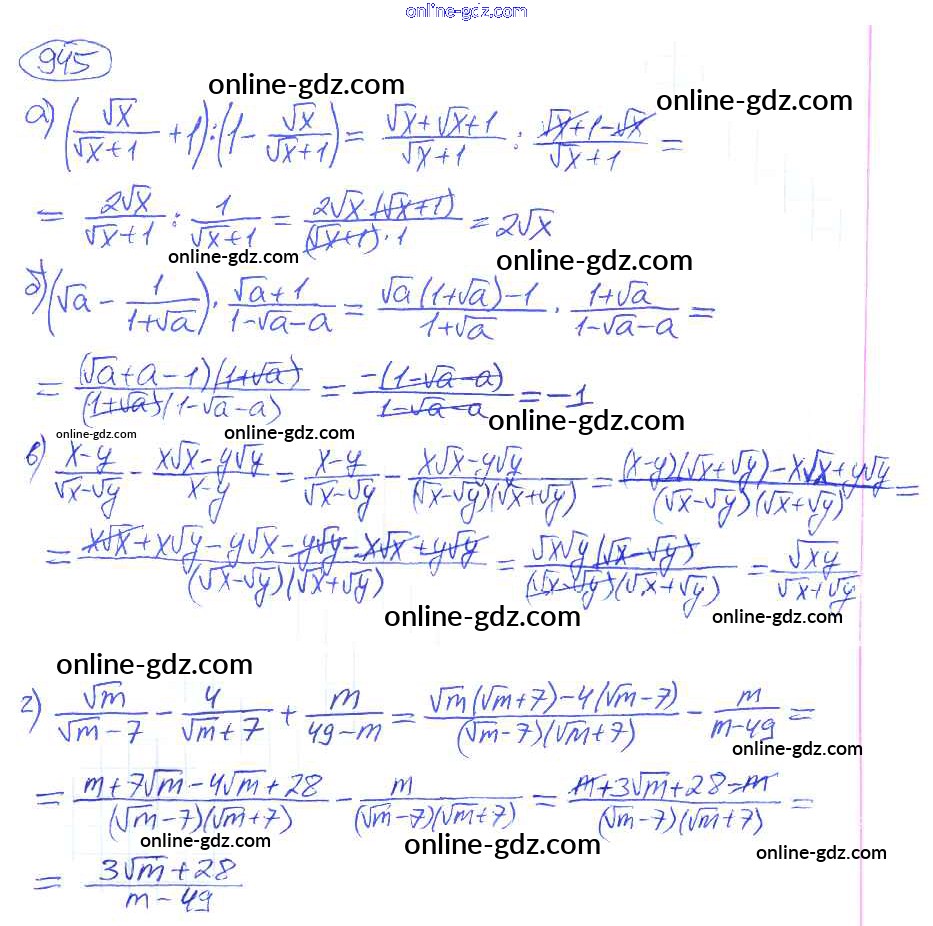 online-gdz.com
945
online-gdz.com
online-gdz.com
а) (√x/(√x+1) + 1) : (1 - √x/(√x+1)) = (√x+√x+1)/(√x+1) : (√x+1-√x)/(√x+1) =
= 2√x/(√x+1) : 1/(√x+1) = 2√x(√x+1)/((√x+1)·1) = 2√x
online-gdz.com
online-gdz.com
б) (√a - 1/(1+√a)) · (√a+1)/(1-√a-a) = (√a(1+√a)-1)/(1+√a) · (1+√a)/(1-√a-a) =
= (√a+a-1)(1+√a)/((1+√a)(1-√a-a)) = -(1-√a-a)/(1-√a-a) = -1
online-gdz.com
online-gdz.com
online-gdz.com
в) (x-y)/(√x-√y) - (x√x-y√y)/(x-y) = (x-y)/(√x-√y) - (x√x-y√y)/((√x-√y)(√x+√y)) = ((x-y)(√x+√y)-x√x+y√y)/((√x-√y)(√x+√y)) =
= (x√x+x√y-y√x-y√y-x√x+y√y)/((√x-√y)(√x+√y)) = √x√y(√x-√y)/((√x-√y)(√x+√y)) = √xy/(√x+√y)
online-gdz.com
online-gdz.com
online-gdz.com
г) √m/(√m-7) - 4/(√m+7) + m/(49-m) = (√m(√m+7)-4(√m-7))/((√m-7)(√m+7)) - m/(m-49) =
online-gdz.com
= (m+7√m-4√m+28)/((√m-7)(√m+7)) - m/((√m-7)(√m+7)) = (m+3√m+28-m)/((√m-7)(√m+7)) =
online-gdz.com
online-gdz.com
online-gdz.com
= (3√m+28)/(m-49)